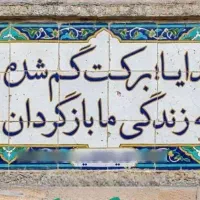 دایا! برکت گم شده
ه زندگی ما بازگردان